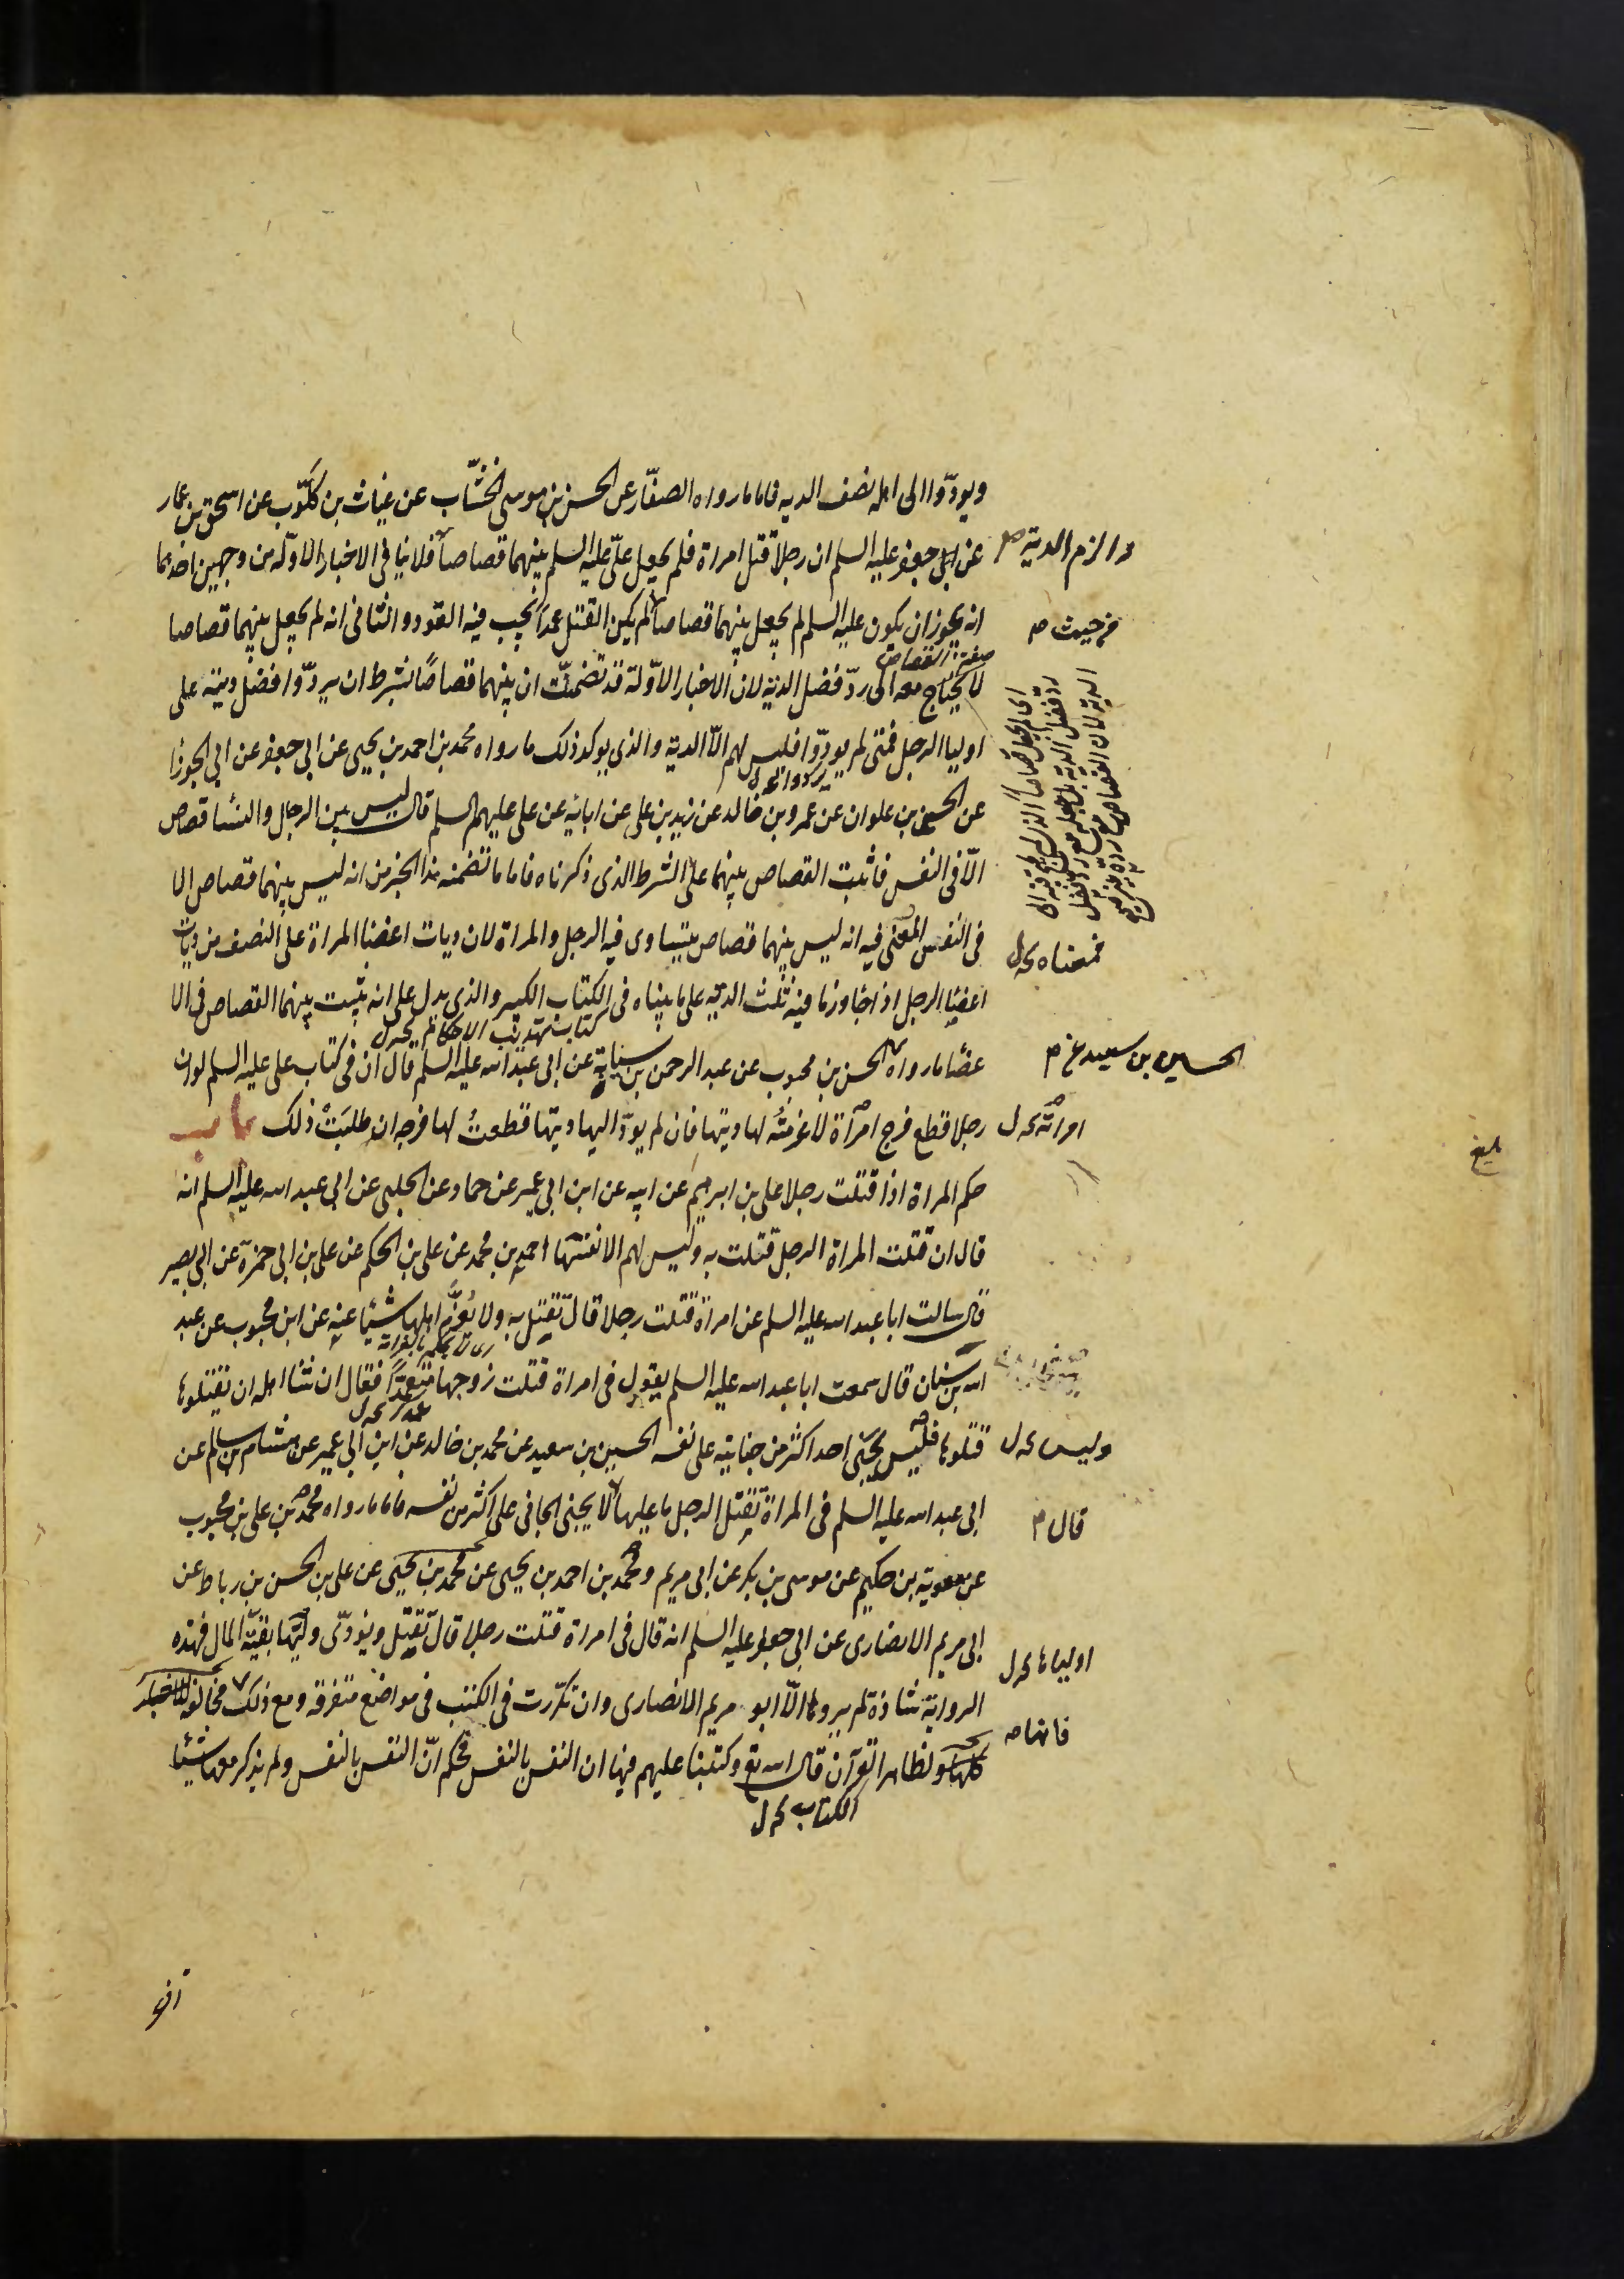 ويودّوا الى اهله نصف الديه فاما ما رواه الصفّار عن الحسن بن موسى الخشّاب عن غياث بن كلّوب عن اسحق بن عمار
عن ابى جعفر عليه السلم ان رجلا قتل امراة فلم يجعل علىّ عليه السلم بينهما قصاصا فلا ينافى الاخبار الاوّله من وجهين احدهما
انه يجوز ان يكون عليه السلم لم يجعل بينهما قصاصا لم يكن القتل عمدا يجب فيه القود والثانى انه لم يجعل بينهما قصاصا
لا يحتاج معه الى ردّ فضل الديه لان الاخبار الاوّلة قد تضمنّت ان بينهما قصاصًا بشرط ان يردّوا فضل ديته على
اوليا الرجل فمتى لم يودّوا فليس لهم الّا الدية والذى يوكد ذلك ما رواه محمد بن احمد بن يحيى عن ابى جعفر عن ابى الجوزا
عن الحسين بن علوان عن عمرو بن خالد عن زيد بن على عن ابائه عن على عليهم السلم قال ليس بين الرجال والنسا قصاص
الّا فى النفس فاثبت القصاص بينهما على الشرط الذى ذكرناه فاما ما تضمنه هذا الخبر من انه ليس بينهما قصاص الا
فى النفس المعنى فيه انه ليس بينهما قصاص يتساوى فيه الرجل والمراة لان ديات اعضا المراة على النصف من ديات
اعضا الرجل اذا جاوز ما فيه ثلث الديه على ما بيناه فى الكتاب الكبير والذى يدل على انه يثبت بينهما القصاص فى الا
كتاب تهذيب الاحكام
عضا ما رواه الحسن بن محبوب عن عبد الرحمن بن سيابة عن ابى عبد الله عليه السلم قال ان فى كتاب على عليه السلم لو ان
رجلا قطع فرج امراة لاغرمتُه لها ديتها فان لم يودّ اليها ديتها قطعتُ لها فرجه ان طلبَتْ ذلك باب
حكم المراة اذا قتلت رجلا على بن ابرهيم عن ابيه عن ابن ابى عمير عن حماد عن الحلبى عن ابى عبد الله عليه السلم انه
قال ان قتلت المراة الرجل قتلت به وليس لهم الا نفسها احمد بن محمد عن على بن الحكم عن على بن ابى حمزة عن ابى بصير
قال سالت ابا عبد الله عليه السلم عن امراة قتلت رجلا قال تقتل به ولا يُغرَّم اهلها شيئا عنه عن ابن محبوب عن عبد
الله بن سنان قال سمعت ابا عبد الله عليه السلم يقول فى امراة قتلت زوجها متعمّدًا فقال ان شا اهله ان يقتلوها
قتلوها فليس يجنى احد اكثر من جنايته على نفسه الحسين بن سعيد عن محمد بن خالد عن ابن ابى عمير عن هشام بن سالم عن
ابى عبد الله عليه السلم فى المراة تقتل الرجل ما عليها لا يجنى الجانى على اكثر من نفسه فاما ما رواه محمد بن على بن محبوب
عن معوية بن حكيم عن موسى بن بكر عن ابى مريم ومحمد بن احمد بن يحيى عن محمد بن يحيى عن على بن الحسن بن رباط عن
ابى مريم الانصارى عن ابى جعفر عليه السلم انه قال فى امراة قتلت رجلا قال تقتل ويودّى وليّها بقيّة المال فهذه
الرواية شاذة لم يروها الّا ابو مريم الانصارى وان تكرّرت فى الكتب فى مواضع متفرقه ومع ذلك مخالفة للاخبار
كلها ولظاهر القرآن قال الله تع وكتبنا عليهم فيها ان النفس بالنفس فحكم انّ النفس بالنفس ولم يذكر معها شيئا
الكتاب
والزم الدية
من حيث
فمعناه
الحسين بن سعيد عن
امراته
وليس
قال
اولياءها
فانها
بلغ